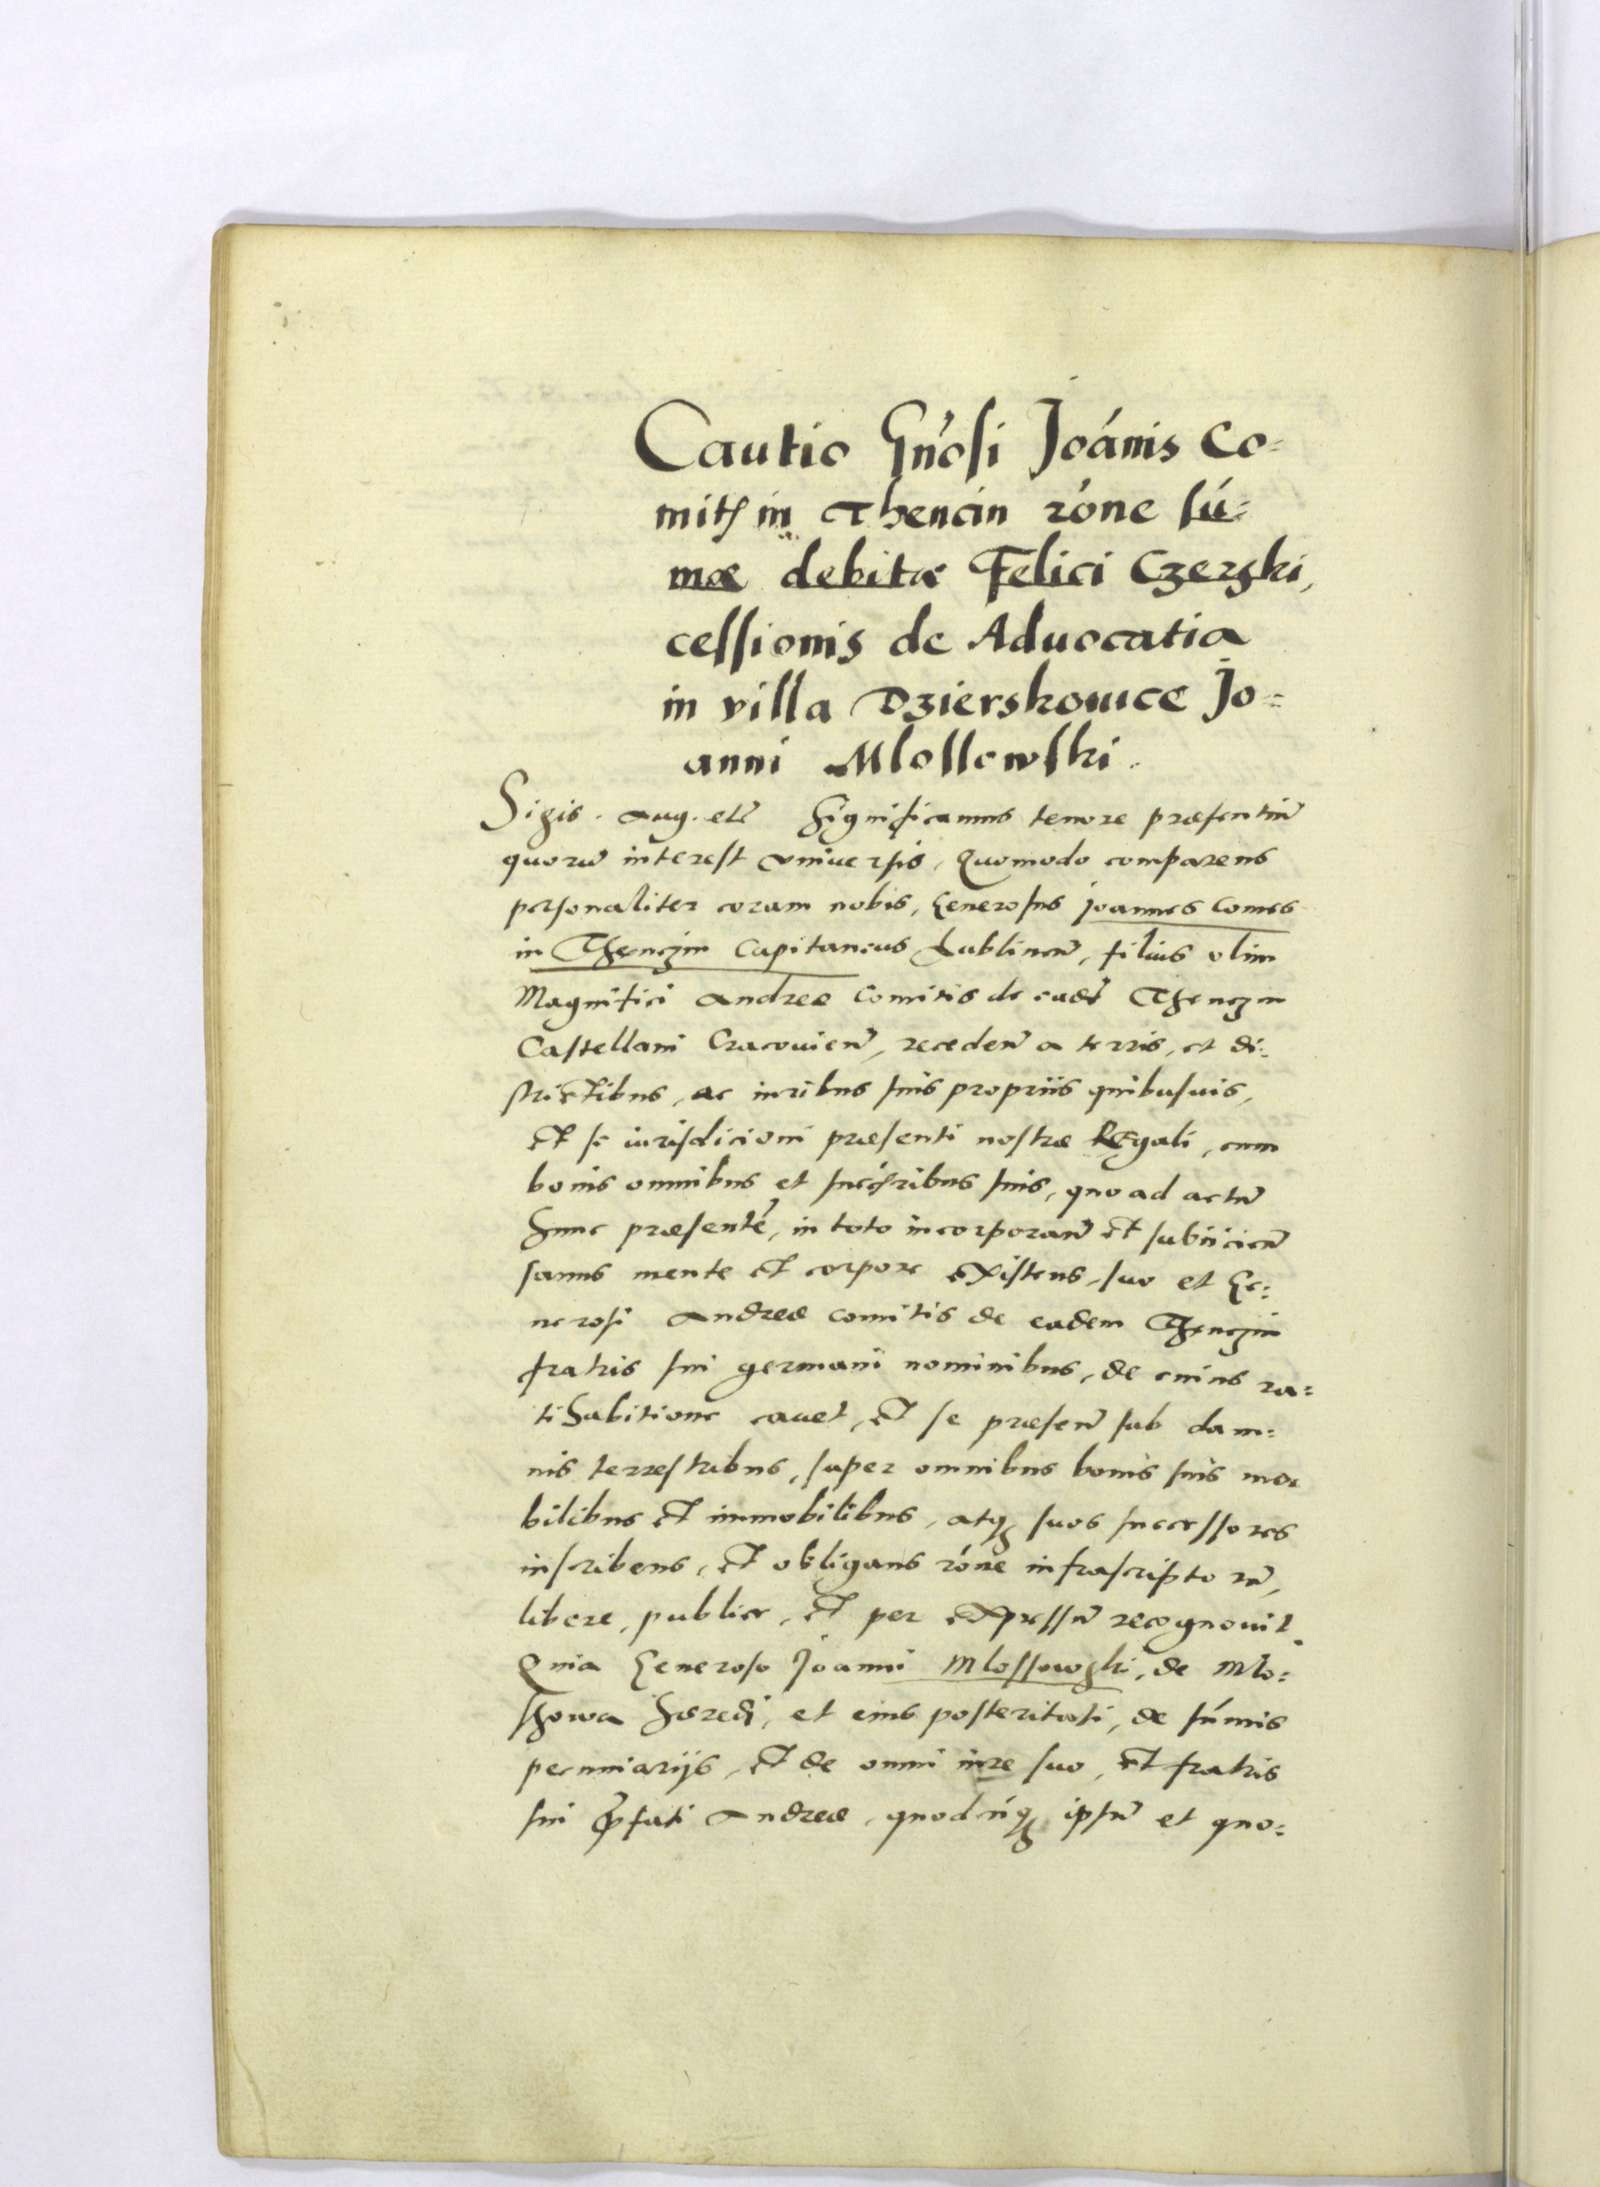 Cautio Gn̄osi Joānis Co=
mitis in Thencin rōne sū=
mæ debitæ Felici Czerski,
cessionis de Aduocatia
in villa Dzierskouice Jo=
anni Mlossowski.
Sigis. Aug. etc̄ Significamus tenore præsentiū
quorū interest vniuersis, Quomodo comparens
personaliter coram nobis, Generosus Joannes Comes
in Thenczin Capitaneus Lublinen̄, filius olim
Magnifici Andreæ Comitis de eadē Thenczin
Castellani Cracouien̄, receden̄ a terris, et di=
strictibus, ac iuribus suis propriis quibusuis,
et se iurisdicioni præsenti nostræ Regali, cum
bonis omnibus et suc̄oribus suis, quo ad actū
hunc præsentē, in toto incorporan̄ et subiicien̄
sanus mente et corpore existens, suo et Ge=
nerosi Andreæ comitis de eadem Thenczin
fratris sui germani nominibus, de cuius ra=
tihabitione cauet, et se præsen̄ sub dam=
nis terrestribus, super omnibus bonis suis mo=
bilibus et immobilibus, atq3 suos successores
inscribens, et obligans rōne infrascripto rū,
libere, publice, et per expressū recognouit.
Quia Generoso Joanni Mlossowski, de Mlo=
schowa hæredi, et eius posteritati, de sūmis
pecuniarijs, et de omni iure suo, et fratris
sui p̄fati Andreæ, quodcūq3 ipsū et quo=